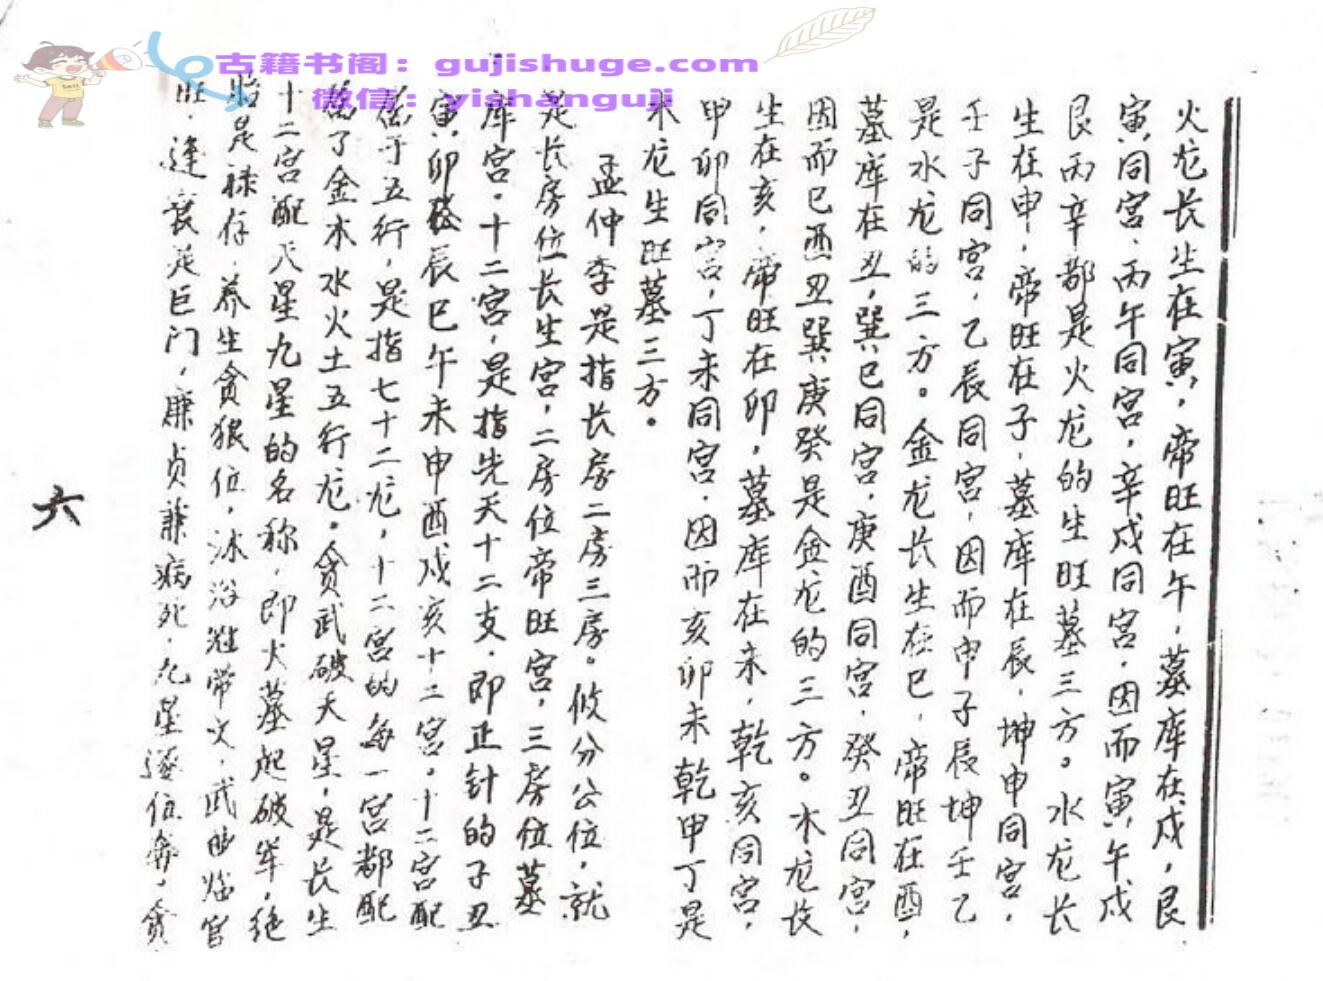 古籍书阁：gujishuge.com
微信：yishanguji
火龙长生在寅，帝旺在午，墓库在戌，艮
寅同宫，丙午同宫，辛戌同宫，因而寅午戌
艮丙辛都是火龙的生旺墓三方。水龙长
生在申，帝旺在子，墓库在辰，坤申同宫，
壬子同宫，乙辰同宫，因而申子辰坤壬乙
是水龙的三方。金龙长生在巳，帝旺在酉，
墓库在丑，巽巳同宫，庚酉同宫，癸丑同宫，
因而巳酉丑巽庚癸是金龙的三方。木龙长
生在亥，帝旺在卯，墓库在未，乾亥同宫，
甲卯同宫，丁未同宫，因而亥卯未乾甲丁是
木龙生旺墓三方。
孟仲季是指长房二房三房。攸分公位，就
是长房位长生宫，二房位帝旺宫，三房位墓
库宫。十二宫，是指先天十二支，即正针的子丑
寅卯辰巳午未申酉戌亥十二宫。十二宫配
于五行，是指七十二龙，十二宫的每一宫都配
了金木水火土五行龙。贪武破天星，是长生
十二宫配天星九星的名称，即火墓起破军，绝
胎是禄存，养生贪狼位，沐浴冠带文，武曲临官
旺，逢衰是巨门，廉贞兼病死，九星逐位奔，贪
六